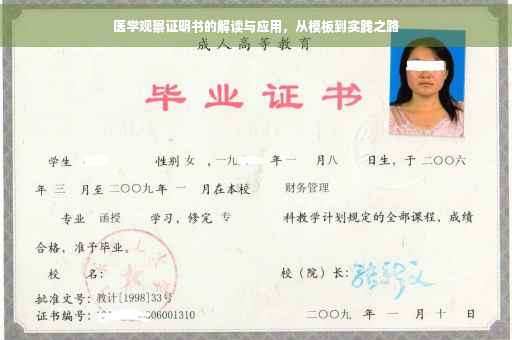 医学观察证明书的解读与应用，从模板到实践之路
成人高等教育
毕业证书
学生 性别 女 ，一九 年一 月八 日生，于 二〇〇六
年 三 月至 二〇〇九 年 一 月在本校 财务管理
专业 函授 学习，修完 专 科教学计划规定的全部课程，成绩
合格，准予毕业。
校 名： 校（院）长：
批准文号：教计[1998]33号
证书编号： 06001310 二〇〇九 年 一 月 十 日